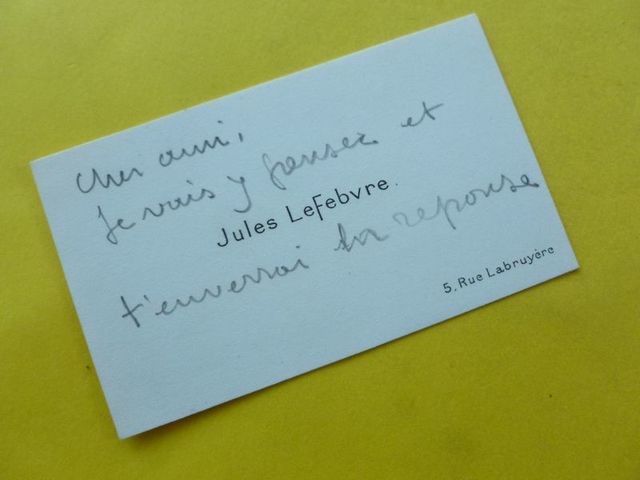 Cher ami,
Je vais y penser et
Jules Lefebvre.
t'enverrai ta reponse
5, Rue Labruyère